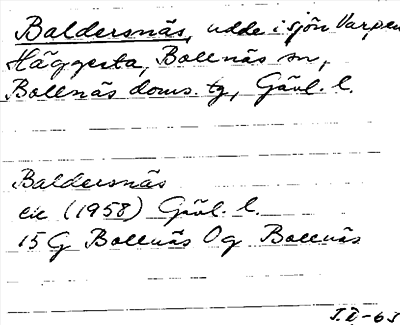 Baldersnäs, udde i sjön Varpen
Häggesta, Bollnäs sn,
Bollnäs doms. tg, Gävl. l.
Baldersnäs
ek (1958) Gävl. l.
15G Bollnäs Og Bollnäs